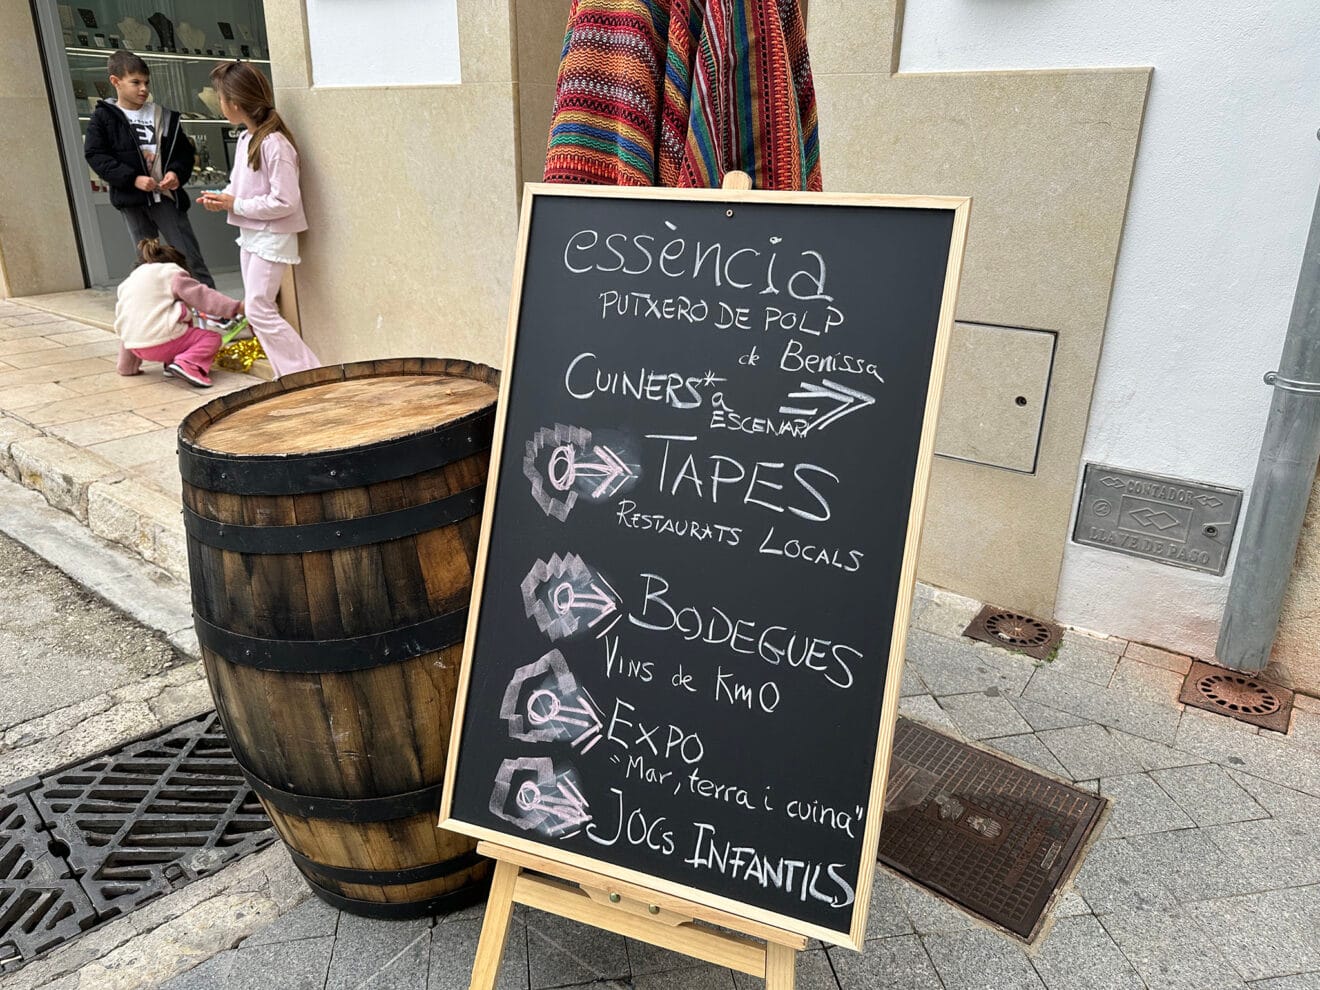 essència
PUTXERO DE POLP
de Benissa
CUINERS*
a
ESCENARI
TAPES
RESTAURATS LOCALS
BODEGUES
VINS de Km0
EXPO
"Mar, terra i cuina"
JOCS INFANTILS
CONTADOR
LLAVE DE PASO